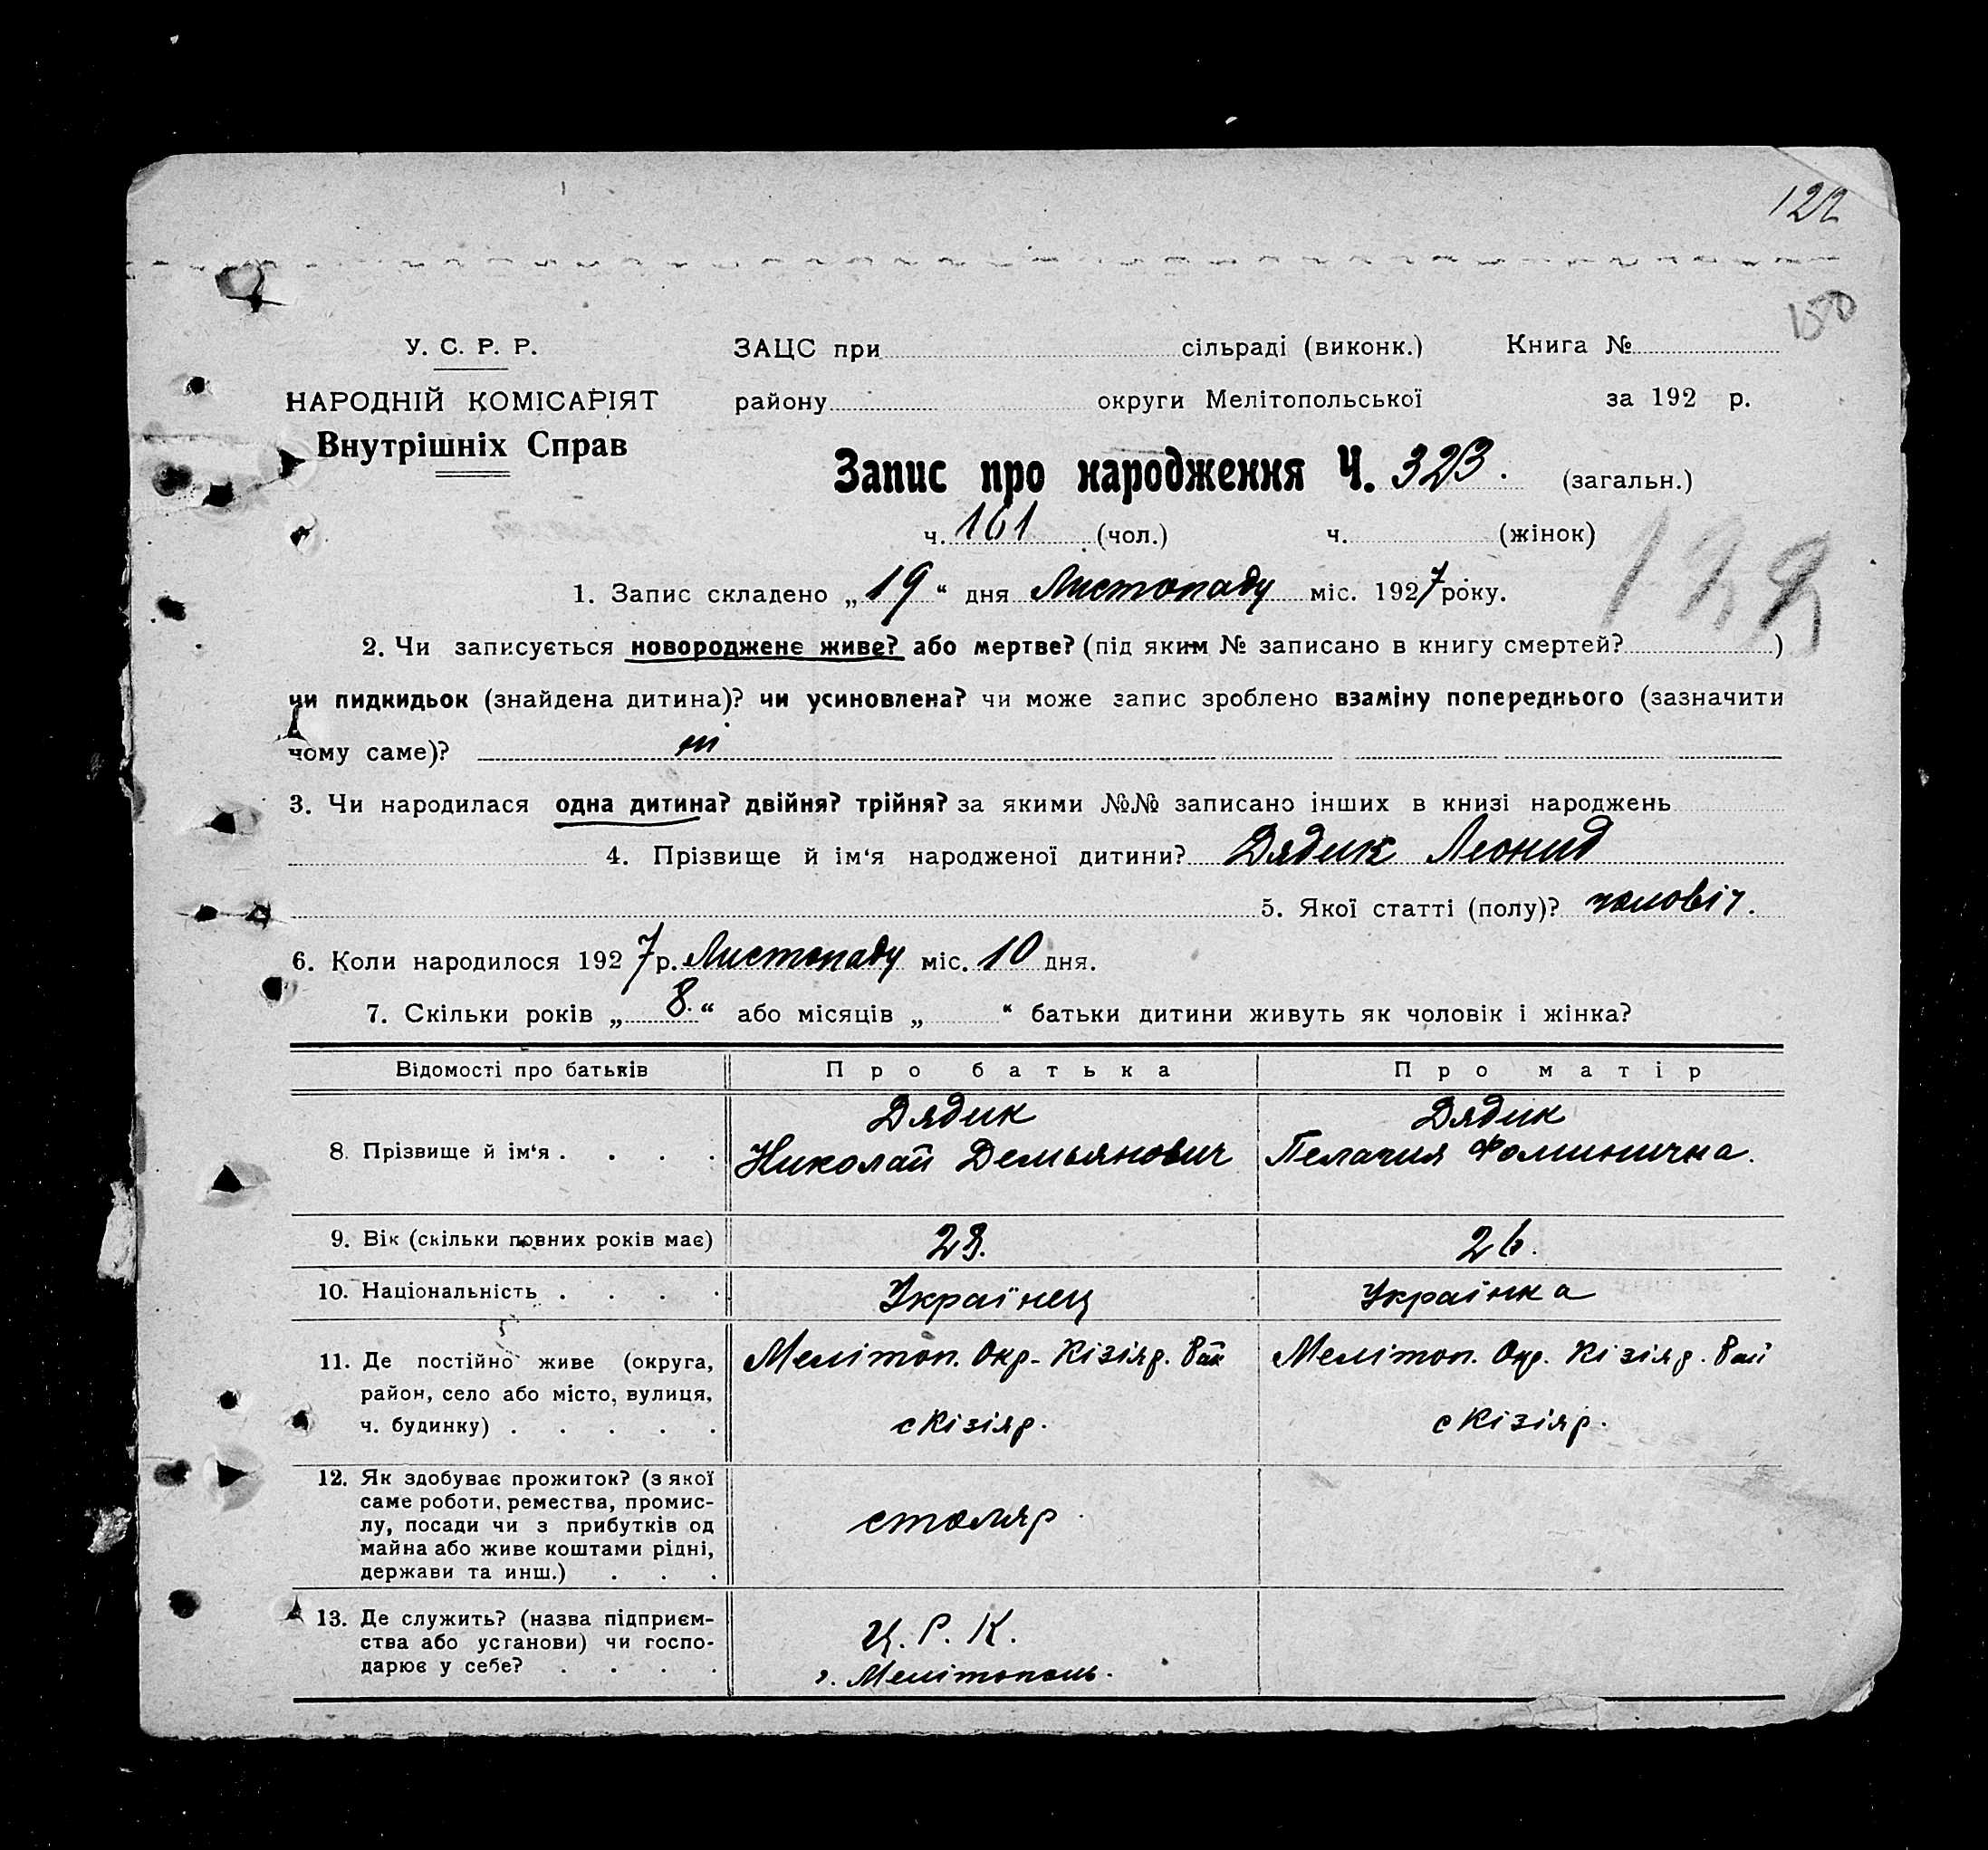 122
150
У. С. Р. Р.
НАРОДНІЙ КОМІСАРІЯТ
Внутрішніх Справ
ЗАЦС при сільраді (виконк.) Книга №
району округи Мелітопольської за 192 р.
Запис про народження Ч. 323. (загальн.)
ч. 161 (чол.) ч. (жінок)
122
1. Запис складено „19“ дня Листопаду міс. 1927 року.
2. Чи записується новороджене живе? або мертве? (під яким № записано в книгу смертей? )
чи пидкидьок (знайдена дитина)? чи усиновлена? чи може запис зроблено взаміну попереднього (зазначити
чому саме)? ні
3. Чи народилася одна дитина? двійня? трійня? за якими №№ записано інших в книзі народжень
4. Прізвище й ім‘я народженої дитини? Дядик Леонид
5. Якої статті (полу)? чоловіч.
6. Коли народилося 1927 р. Листопаду міс. 10 дня.
7. Скільки років „8.“ або місяців „ “ батьки дитини живуть як чоловік і жінка?
Відомості про батьків Про батька Про матір
8. Прізвище й ім‘я . . . .
Дядик
Николай Демьянович
Дядик
Пелагия Фоминична.
9. Вік (скільки повних років має) 28. 26.
10. Національність . . . . Українець Українка
11. Де постійно живе (округа,
район, село або місто, вулиця,
ч. будинку) . . . . .
Мелітоп. Окр. Кізіяр. Рай
с Кізіяр.
Мелітоп. Окр. Кізіяр. Рай
с Кізіяр.
12. Як здобуває прожиток? (з якої
саме роботи, ремества, промис-
лу, посади чи з прибутків од
майна або живе коштами рідні,
держави та инш.) . . .
столяр.
13. Де служить? (назва підприєм-
ства або установи) чи госпо-
дарює у себе? . . . .
Ц. Р. К.
г. Мелітополь.